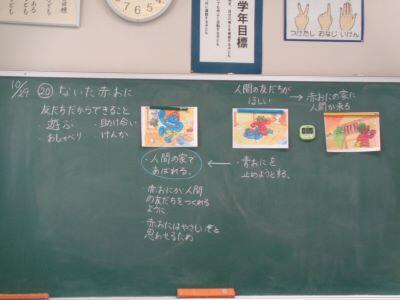 学年目標
つけたし おなじ いけん
10/29 ⑳ ないた赤おに
友だちだからできること
・遊ぶ ・助け合い
・おしゃべり ・けんか
人間の友だちが
ほしい
→ 赤おにの家に
人間が来る
← ・青おにを
止めようとする。
・人間の家で
あばれる。
赤おにが人間
の友だちをつくれる
ように
赤おにはやさしいぞと
思わせるため